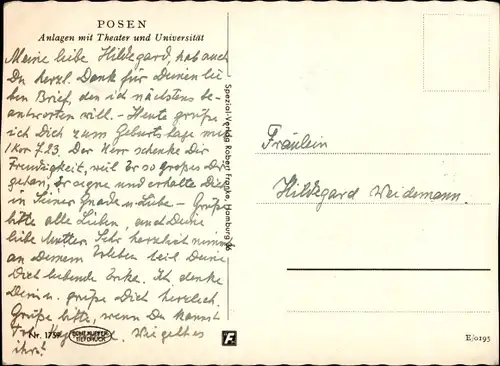 POSEN
Anlagen mit Theater und Universität
Meine liebe Hildegard, hab auch
Du herzl. Dank für Deinen lie-
ben Brief, den ich nächstens be-
antworten will. – Heute grüße
ich Dich zum Geburtstage mit
1 Kor 7.23. Der Herr schenke Dir
Freudigkeit, weil Er so großes Dir
getan, Er segne und erhalte Dich
in Seiner Gnade u. Liebe. – Grüße
bitte alle Lieben, auch Deine
liebe Mutter. Sehr herzlich nimmt
an Deinem Erleben teil Deine
Dich liebende Erika. Ich denke
Dein u. grüße Dich herzlich.
Grüße bitte, wenn Du kannst
Wie geht es
ihr?
Nr. 1759
ECHT KUPFER
TIEFDRUCK
Spezial-Verlag Robert Franke, Hamburg 36
F
Fräulein
Hildegard Weidemann.
E/0195